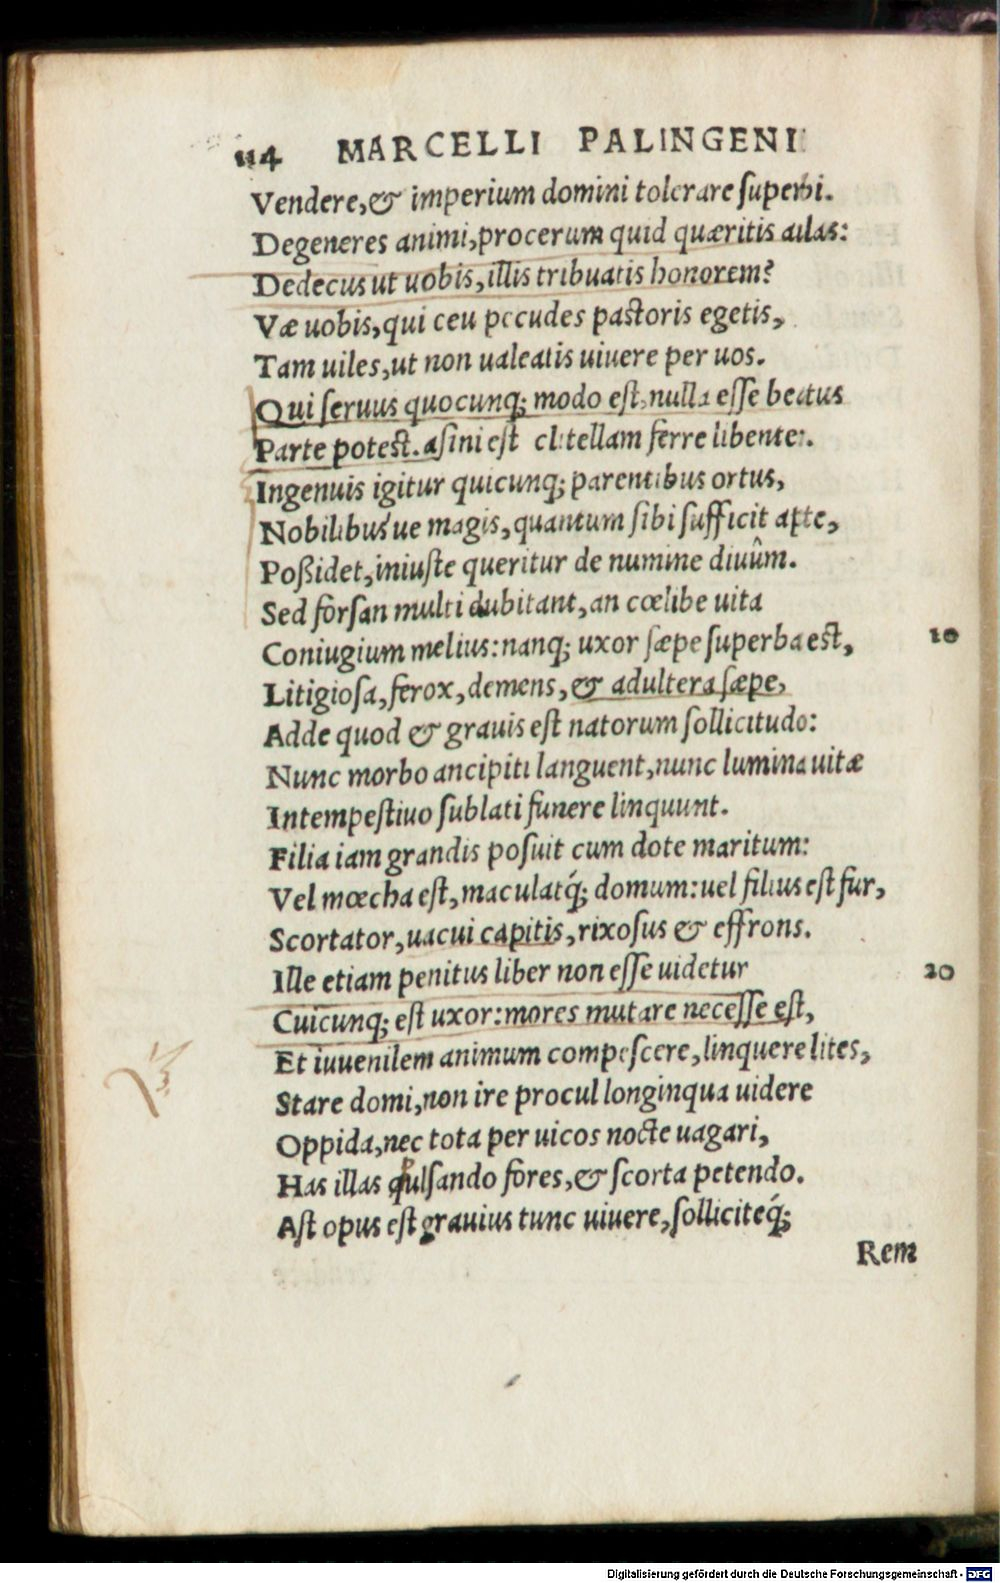 114 MARCELLI PALINGENI
Vendere,& imperium domini tolerare ſuperbi.
Degeneres animi,procerum quid quæritis aulas:
Dedecus ut uobis,illis tribuatis honorem?
Væ uobis,qui ceu pecudes paſtoris egetis,
Tam uiles,ut non ualeatis uiuere per uos.
Qui ſeruus quocunq; modo est,nulla eſſe beatus
Parte potest.aſini eſt clitellam ferre libenter.
Ingenuis igitur quicunq; parentibus ortus,
Nobilibus´ue magis,quantum ſibi ſufficit apte,
Poßidet,iniuſte queritur de numine diuûm.
Sed forſan multi dubitant,an cœlibe uita
Coniugium melius:nanq; uxor ſæpe ſuperba est,
10
Litigioſa,ferox,demens,& adultera ſæpe,
Adde quod & grauis eſt natorum ſollicitudo:
Nunc morbo ancipiti languent,nunc lumina uitæ
Intempeſtiuo ſublati funere linquunt.
Filia iam grandis poſuit cum dote maritum:
Vel mœcha eſt,maculatq́; domum:uel filius eſt fur,
Scortator,uacui capitis,rixoſus & effrons.
Ille etiam penitus liber non eſſe uidetur
20
Cuicunq; eſt uxor:mores mutare neceſſe eſt,
Et iuuenilem animum compeſcere,linquere lites,
Stare domi,non ire procul longinqua uidere
Oppida,nec tota per uicos nocte uagari,
Has illas pulſando fores,& ſcorta petendo.
Aſt opus eſt grauius tunc uiuere,ſolliciteq́;
Rem
Digitalisierung gefördert durch die Deutsche Forschungsgemeinschaft - DFG